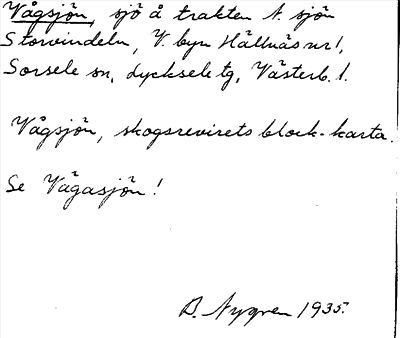 Vågsjön, sjö å trakten N. sjön
Storvindeln, V. byn Hällnäs nr 1,
Sorsele sn, Lycksele tg, Västerb. l.
Vågsjön, skogsrevirets block-karta.
Se Vågasjön!
B. Nygren 1935.